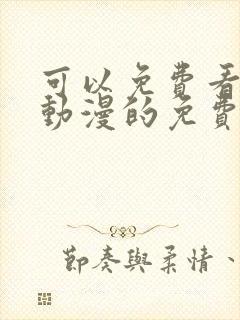 可以免費看
動漫的免費
節奏與柔情、